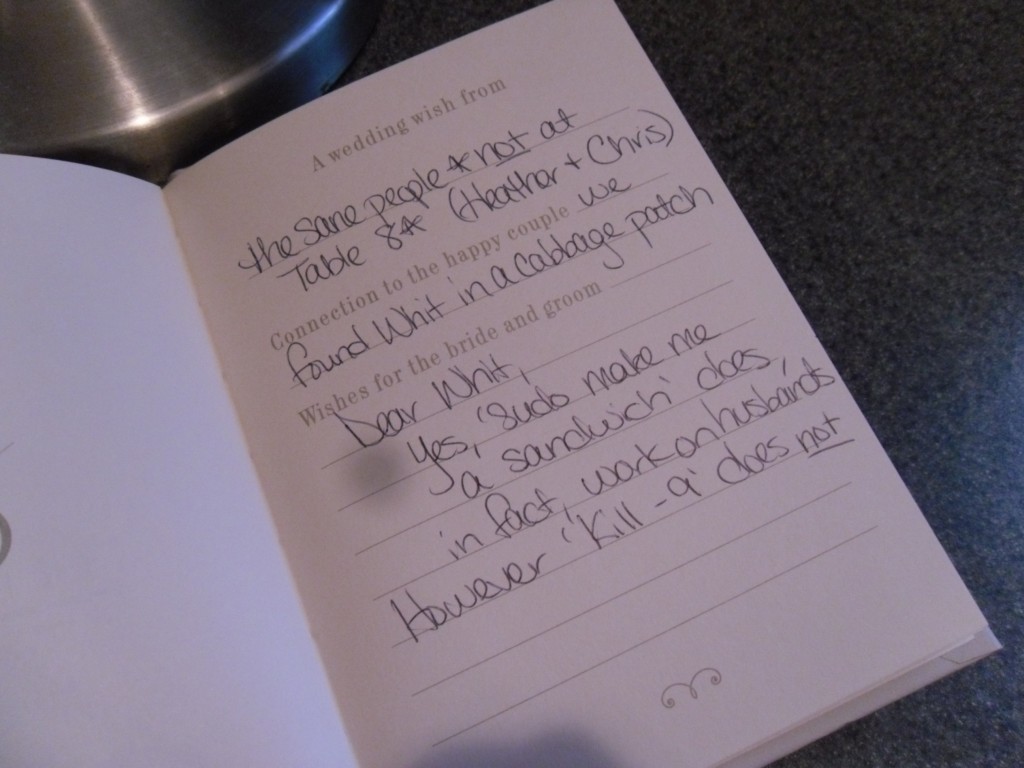 A wedding wish from
the sane people * not at
Table 8* (Heather + Chris)
Connection to the happy couple we
found Whit in a cabbage patch
Wishes for the bride and groom
Dear Whit,
yes, 'sudo make me
a sandwich' does,
in fact, work on husbands
However 'Kill -9' does not